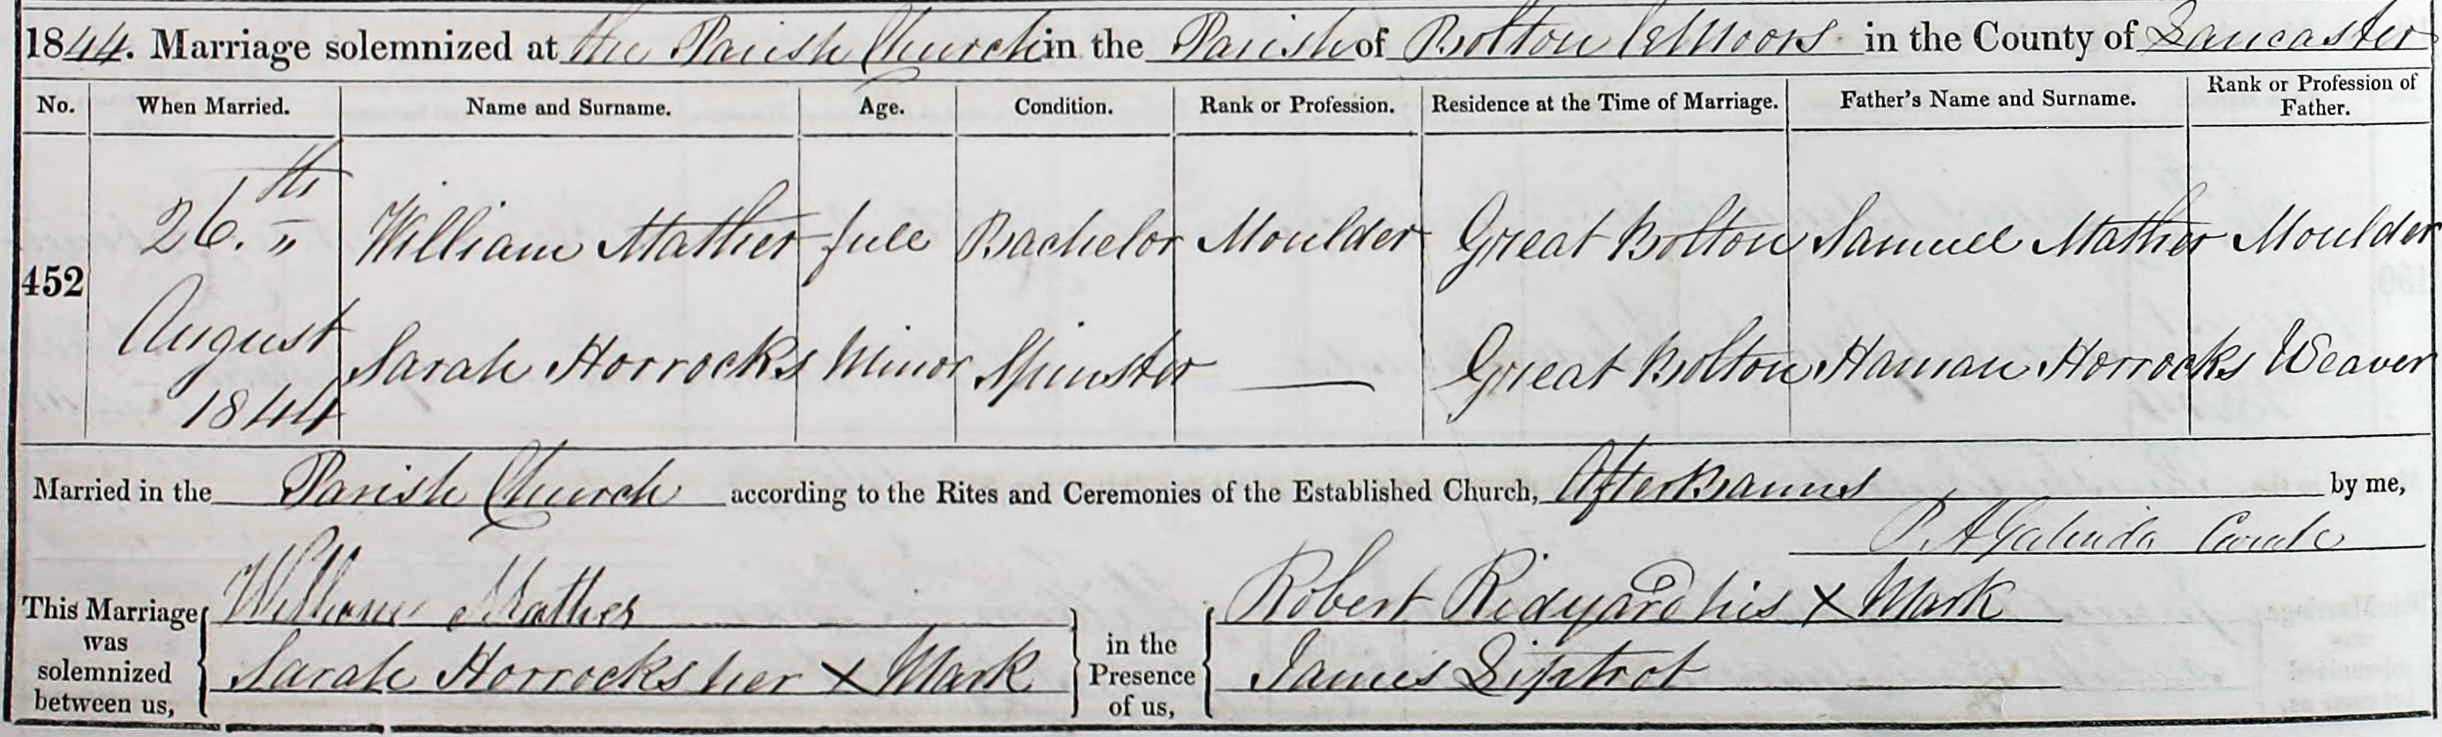 1844. Marriage solemnized at the Parish Church in the Parish of Bolton le Moors in the County of Lancaster
No. When Married. Name and Surname. Age. Condition. Rank or Profession. Residence at the Time of Marriage. Father's Name and Surname. Rank or Profession of Father.
452
26.th August 1844
William Mather full Bachelor Moulder Great Bolton Samuel Mather Moulder
Sarah Horrocks Minor Spinster — Great Bolton Haman Horrocks Weaver
Married in the Parish Church according to the Rites and Ceremonies of the Established Church, After Banns by me,
P. A. Galindo Curate
This Marriage was solemnized between us,
William Mather
Sarah Horrocks her x Mark
in the Presence of us,
Robert Ridyard his x Mark
James Liptrot